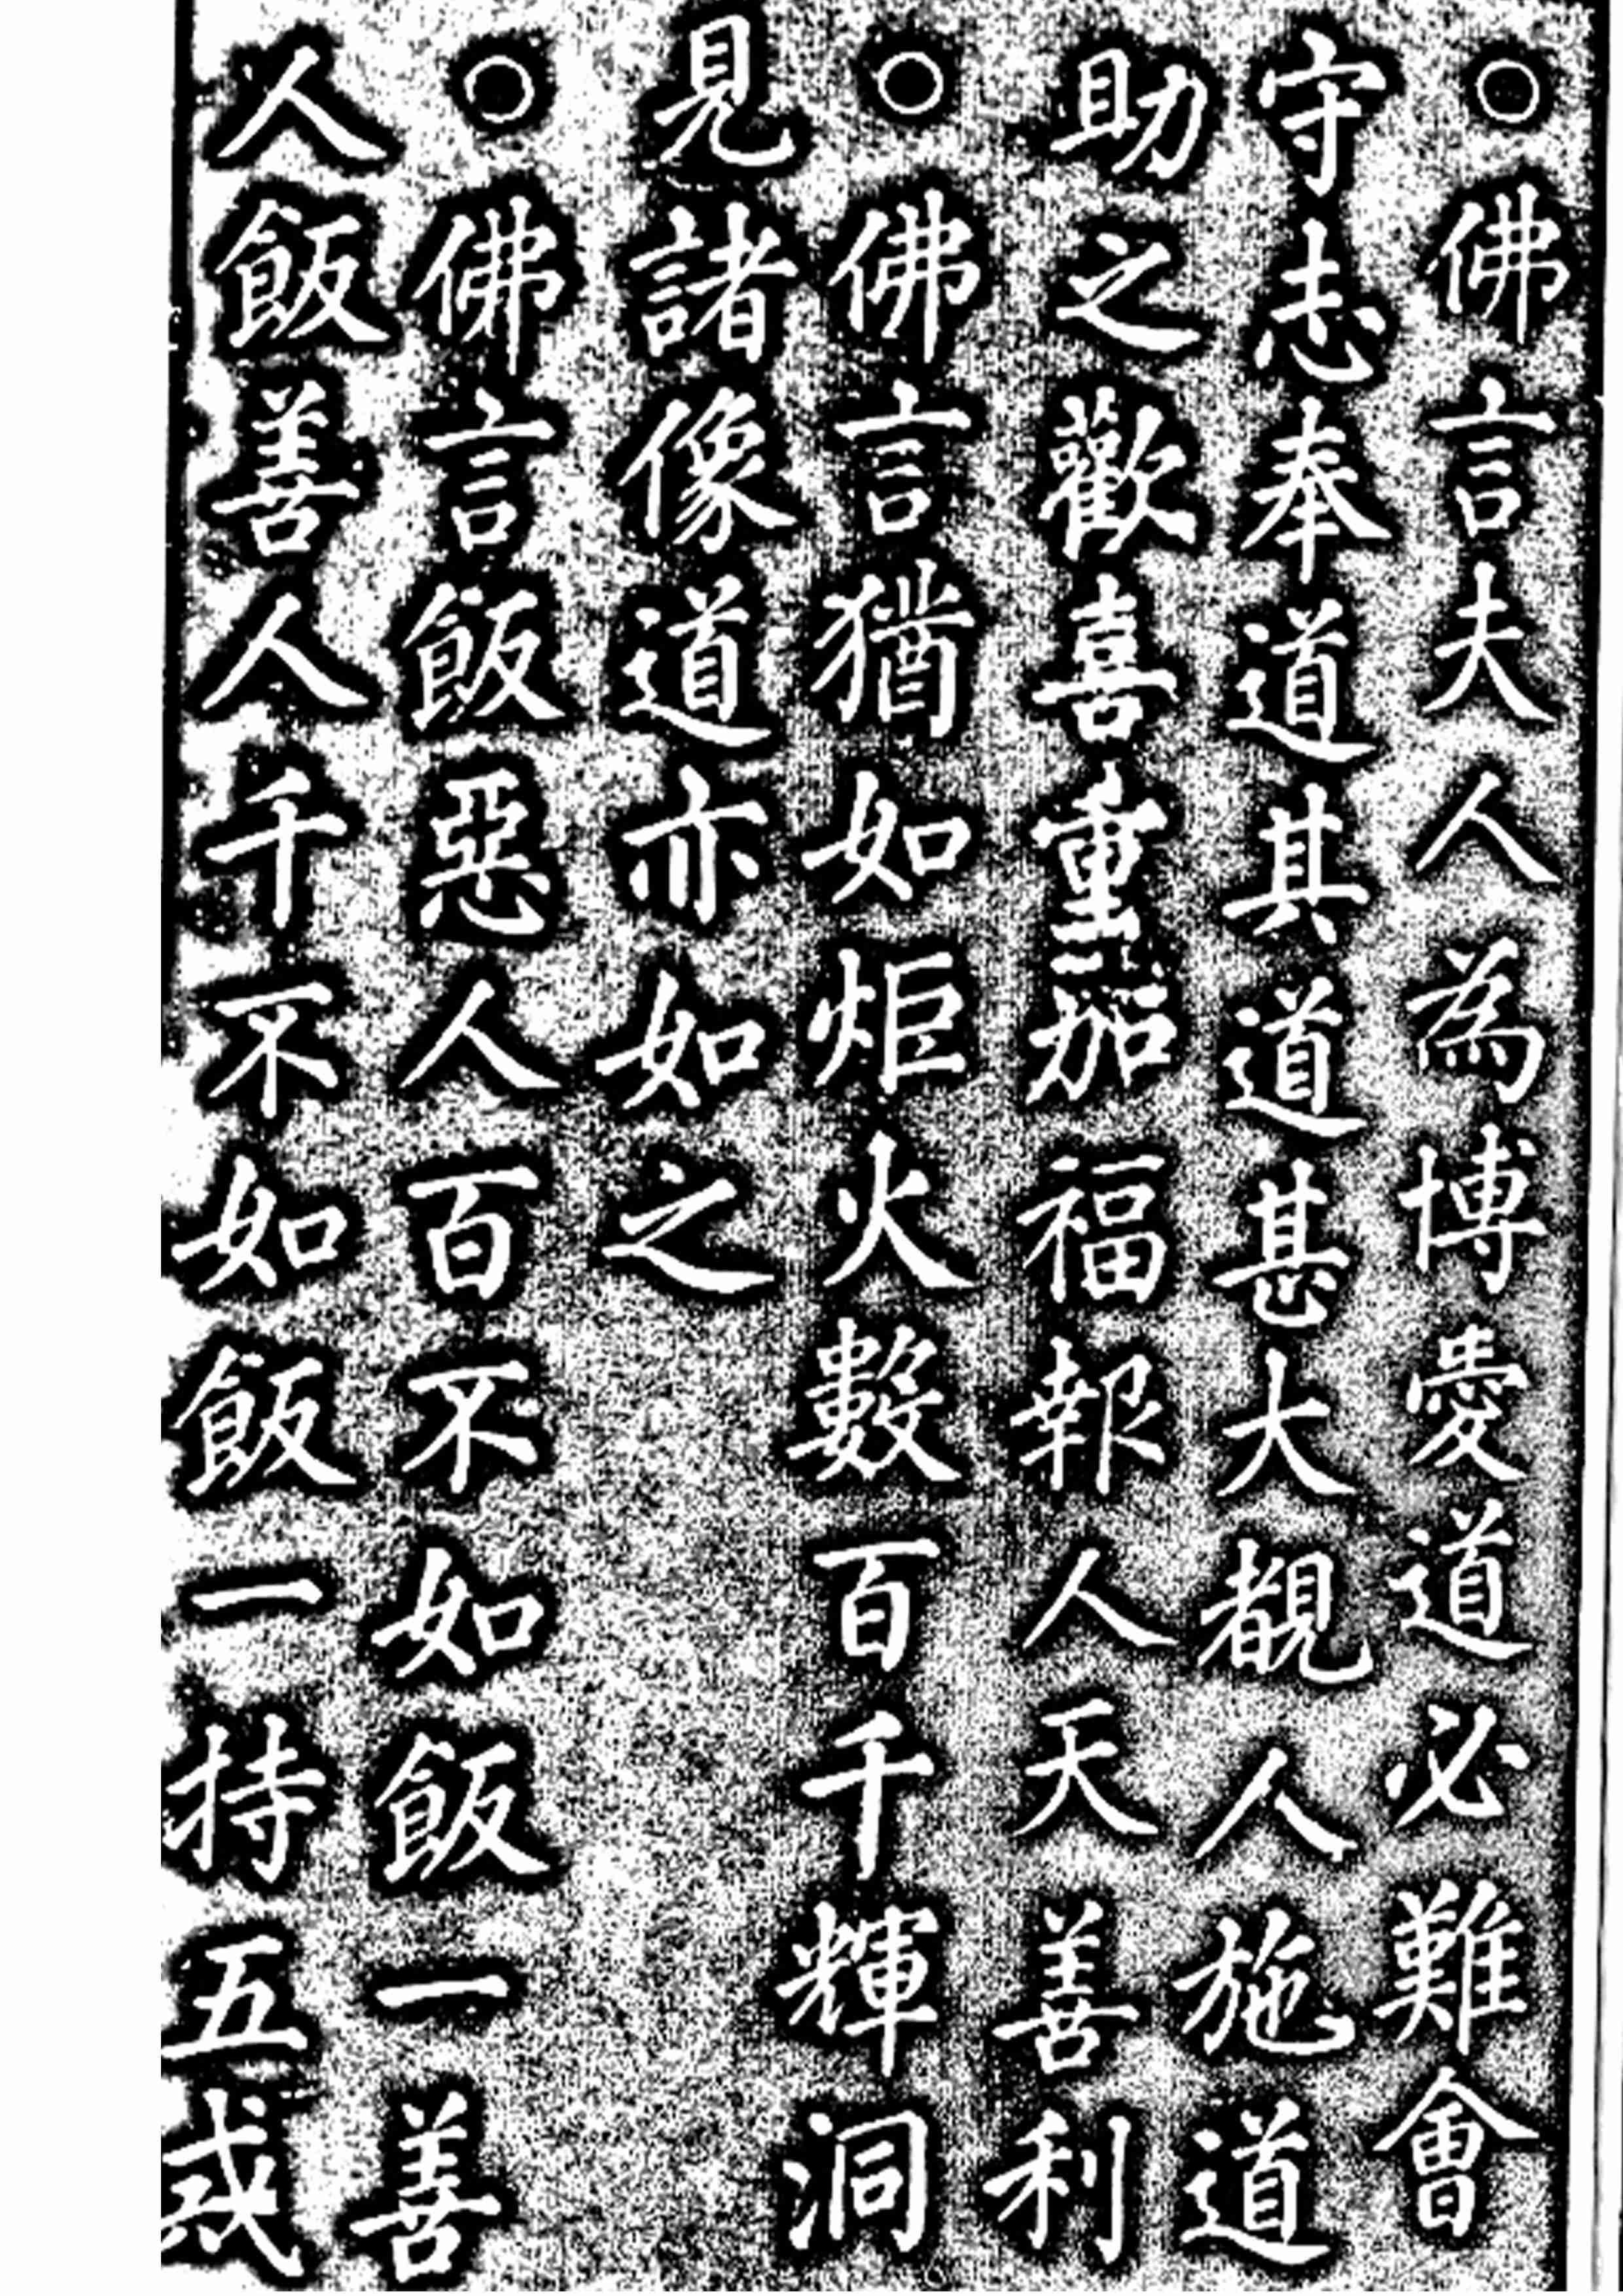 ○佛言夫人為博愛道必難會
守志奉道其道甚大覩人施道
助之歡喜重加福報人天善利
○佛言猶如炬火數百千輝洞
見諸像道亦如之
○佛言飯惡人百不如飯一善
人飯善人千不如飯一持五戒